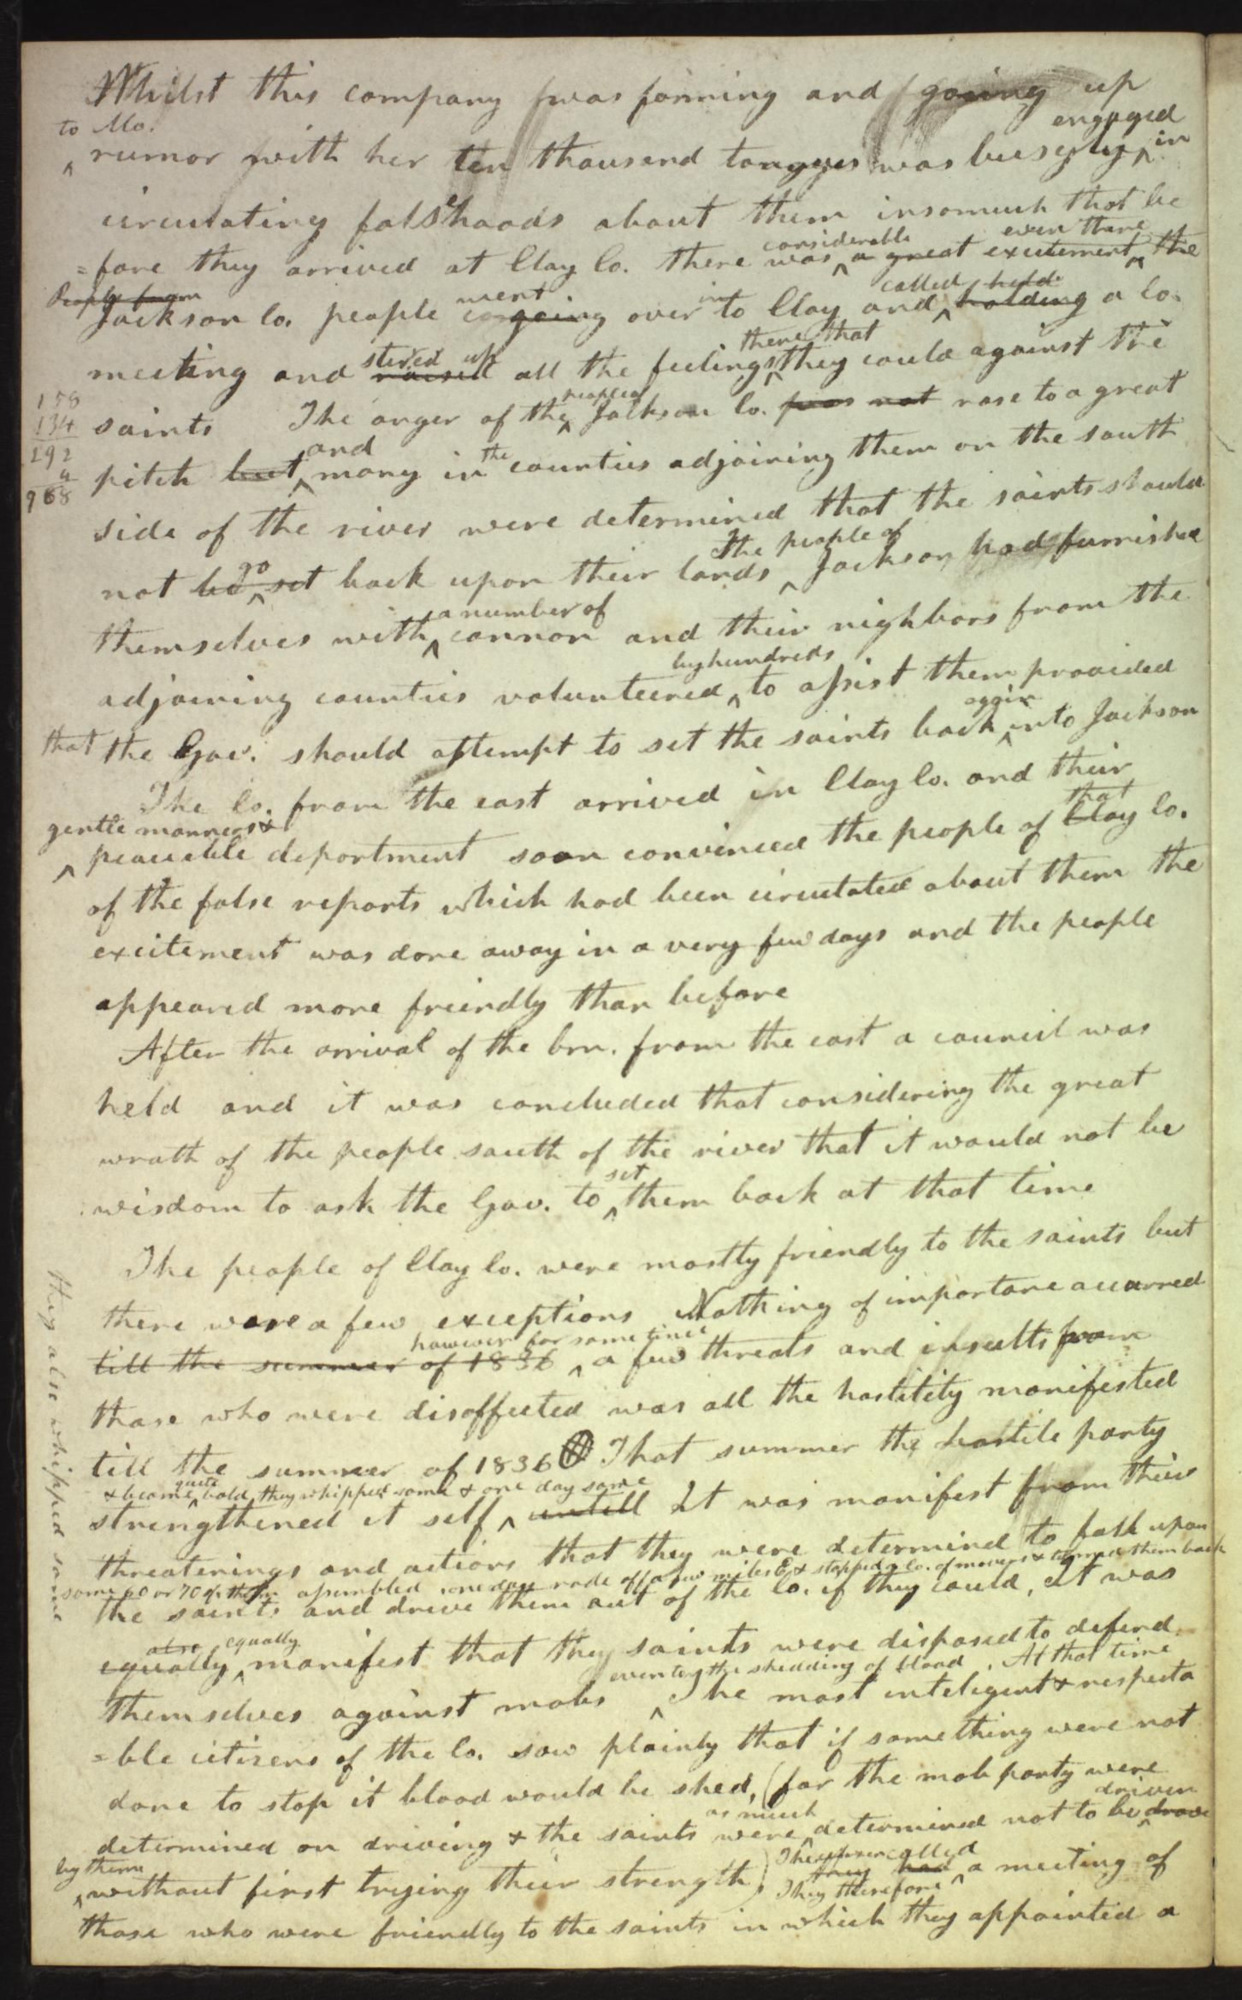 Whilst this company was forming and going up
to Mo.
engaged
rumor with her ten thousand tongues was busyly in
circulating falsehoods about them insomuch that be
considerable even there
=fore they arrived at Clay Co. there was a great excitement the
People from went in called held
Jackson Co. people going over to Clay and holding a Co.
stired up there that
meeting and raised all the feelings they could against the
peopled
saints The anger of the Jackson Co. was not rose to a great
158
134
292
4
968
and the
pitch but many in counties adjoining them on the south
side of the river were determined that the saints should
go The people of
not be set back upon their lands Jackson had furnished
a number of
themselves with cannon and their nighbors from the
by hundreds
adjoining counties volunteered to assist them provided
again
that the Gov. should attempt to set the saints back into Jackson
The Co. from the east arrived in Clay Co. and their
gentle manners & that
peaceible deportment soon convinced the people of Clay Co.
of the false reports which had been circulated about them the
excitement was done away in a very few days and the people
appeared more friendly than before
After the arrival of the brn. from the east a council was
held and it was concluded that considering the great
wrath of the people south of the river that it would not be
set
wisdom to ask the Gov. to them back at that time
The people of Clay Co. were mostly friendly to the saints but
there were a few exceptions Nothing of importane accurred
however for some time
till the summer of 1836 a few threats and insults from
those who were disaffected was all the hostility manifested
till the summer of 1836 That summer the hostile party
& became quite bold, they whipped some & one day some
strengthened it self untill It was manifest from their
threatenings and actions that they were determind to fall upon
some 60 or 70 of them assembled one day rode off a few miles E & stopped a Co. of movers & turned them back
the saints and drive them out of the Co. if they could, It was
also equally
equally manifest that they saints were disposed to defend
even to the shedding of blood. At that time
themselves against mobs The most inteligent & respecta
=ble citizens of the Co. saw plainly that if something were not
done to stop it blood would be shed, (for the mob party were
as much driven
determined on driving & the saints were determined not to be drove
by them called
without first trying their strength) they had a meeting of
They therefore
those who were friendly to the saints in which they appointed a
they also whipped some